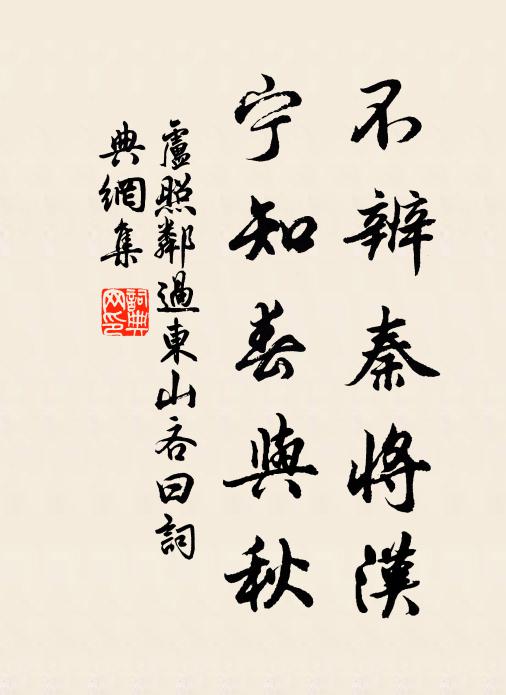 不辨秦將漢
宁知春與秋
盧照鄰過東山谷口詞
典網集
詞典
网印